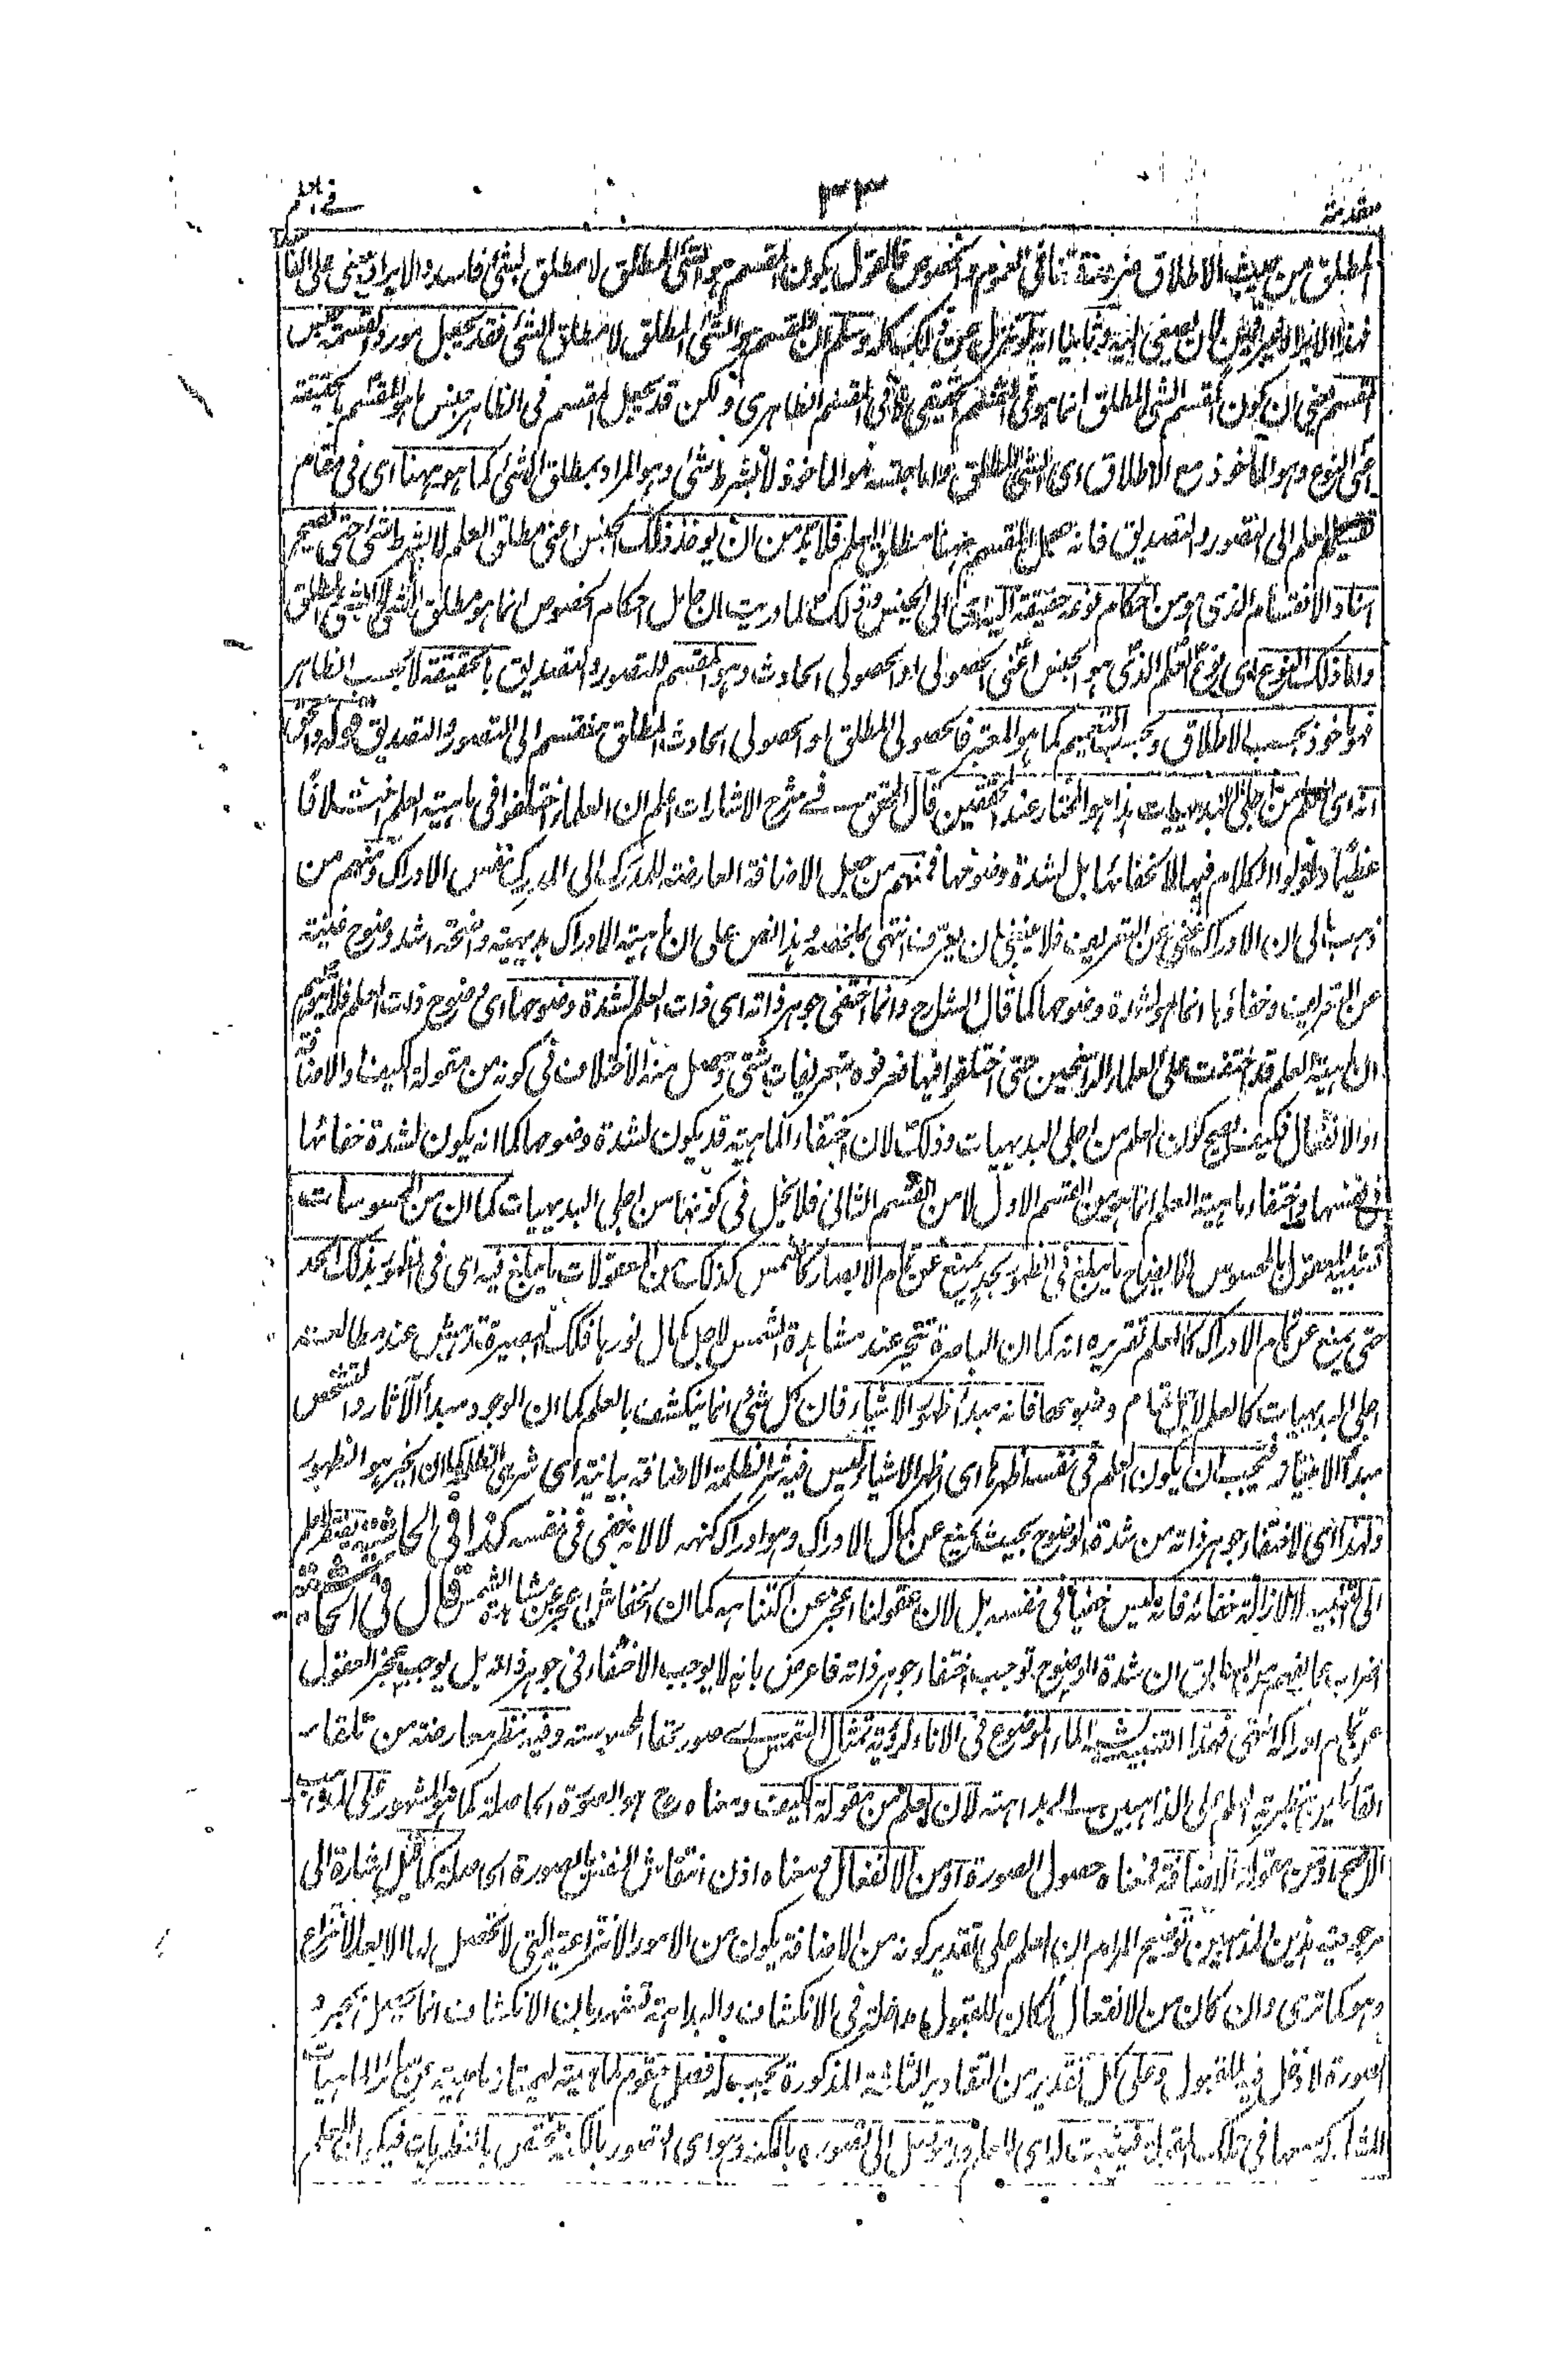 مقدمة ٣٣ في العلم
المطلق من حيث الاطلاق ضرورة تنافي العموم والخصوص فالقول بكون المقسم هو الشئ المطلق لا مطلق الشئ فاسد والايراد يبنى على الفا
المقسم يعني ان كون المقسم الشئ المطلق انما هو في المقسم الحقيقي لا في المقسم الظاهري ولكن قد يجعل المقسم في الظاهر جنس ما هو المقسم بالحقيقة
اعني النوع وهو الماخوذ مع الاطلاق اى الشئ المطلق واما جنسه فهو الماخوذ لا بشرط شئ وهو المراد بمطلق الشئ كما هو ههنا اى في مقام
تقسيم العلم الى التصور والتصديق فانه جعل المقسم ههنا مطلق العلم فلا بد من ان يوخذ ذلك الجنس اعنى مطلق العلم لا بشرط شئ حتى يصح
اسناد الانقسام الذى هو من احكام نوعه حقيقة اليه اى الى الجنس وذلك لما دريت ان حامل احكام الخصوص انما هو مطلق الشئ لا الشئ المطلق
واما ذلك النوع اى نوع العلم الذى هو الجنس اعنى الحصولى او الحصولى الحادث وهو المقسم للتصور والتصديق بالحقيقة لا بحسب الظاهر
فهو ماخوذ بحسب الاطلاق وبحسب التعميم كما هو المعتبر فالحصولى المطلق او الحصولى الحادث المطلق منقسم الى التصور والتصديق قوله والحق
انه اى العلم من اجلى البديهيات هذا هو المختار عند المحققين قال المحقق في شرح الاشارات اعلم ان العلماء اختلفوا في ماهية العلم اختلافا
عظيما وطولوا الكلام فيها لا لخفائها بل لشدة وضوحها فمنهم من جعل الاضافة العارضة للمدرك الى المدرك نفس الادراك ومنهم من
ذهب الى ان الادراك غنى عن التعريف فلا ينبغى ان يعرف انتهى ملخصه وهذا نص على ان ماهية الادراك بديهية واضحة اشد وضوح غنية
عن التعريف وخفاؤها انما هو لشدة وضوحها كما قال الشارح وانما اختفى جوهر ذاته اى ذات العلم لشدة وضوحها اى وضوح ذات العلم فلا يتوهم
ان ماهية العلم قد اختفت على العلماء الراسخين حتى اختلفوا فيها فعرفوه بتعريفات شتى وحصل منه الاختلاف في كونه من مقولة الكيف او الاضافة
او الانفعال فكيف يصح كون العلم من اجلى البديهيات وذلك لان اختفاء الماهية قد يكون لشدة وضوحها كما انه يكون لشدة خفائها
في نفسها واختفاء ماهية العلم انما هو من القسم الاول لا من القسم الثانى فلا يخل في كونها من اجلى البديهيات كما ان من المحسوسات
تشبيه المعقول بالمحسوس للايضاح ما يبلغ في الظهور بحد يمنع عن تمام الابصار كالشمس كذلك من المعقولات ما يبلغ فيه اى في الظهور بذلك الحد
حتى يمنع عن تمام الادراك كالعلم تقريره انه كما ان الباصرة تتحير عند مشاهدة الشمس لاجل كمال نورها فكذلك البصيرة تدهش عند مطالعة
اجلى البديهيات كالعلم لاجل تمام وضوحها فانه مبدأ ظهور الاشياء فان كل شئ انما ينكشف بالعلم كما ان الوجود مبدأ الآثار والتشخص
مبدأ الامتياز فيجب ان يكون العلم في نفسه اظهرها اى اظهر الاشياء وليس فيه شر الظلمة الاضافة بيانية اى شر هى الظلمة كما ان الخير هو الظهور
ولهذا اى لاختفاء جوهر ذاته من شدة الوضوح بحيث يمنع عن كمال الادراك وهو ادراك كنهه لا لانه خفى في نفسه كذا في الحاشية يفتقر العلم
الى التنبيه لا لازالة خفائه فانه ليس خفيا في نفسه بل لان عقولنا اعجز عن اكتناهه كما ان الخفاش اعجز عن مشاهدة الشمس قال في الحاشية
اضراب عما يفهم من السابق ان شدة الوضوح توجب اختفاء جوهر ذاته فاعرض بانه لا يوجب الاختفاء في جوهر ذاته بل يوجب عجز العقول
عن تمام ادراكه انتهى فهذا التنبيه كالماء الموضوع في الاناء لرؤية تمثال الشمس اى صورتها المحسوسة وفيه نظر معارضة من تلقاء
القائلين بنظرية العلم على الذاهبين الى البداهة لان العلم من مقولة الكيف ومعناه ح هو الصورة الحاصلة كما هو المشهور على المذهب
الاصح او من مقولة الاضافة فمعناه حصول الصورة او من الانفعال ومعناه اذن انتقاش النفس بالصورة الحاصلة كما قيل اشارة الى
مرجوحية هذين المذهبين توضيح المرام ان العلم على تقدير كونه من الاضافة يكون من الامور الانتزاعية التى لا تحصل لها الا بعد الانتزاع
وهو كما ترى وان كان من الانفعال لكان للقبول مداخلة في الانكشاف والبداهة تشهد بان الانكشاف انما يحصل بمجرد
الصورة لا دخل فيه للقبول وعلى كل تقدير من التقادير الثلثة المذكورة يجب له فصل مقوم لماهيته ليمتاز ماهيته عن سائر الماهيات